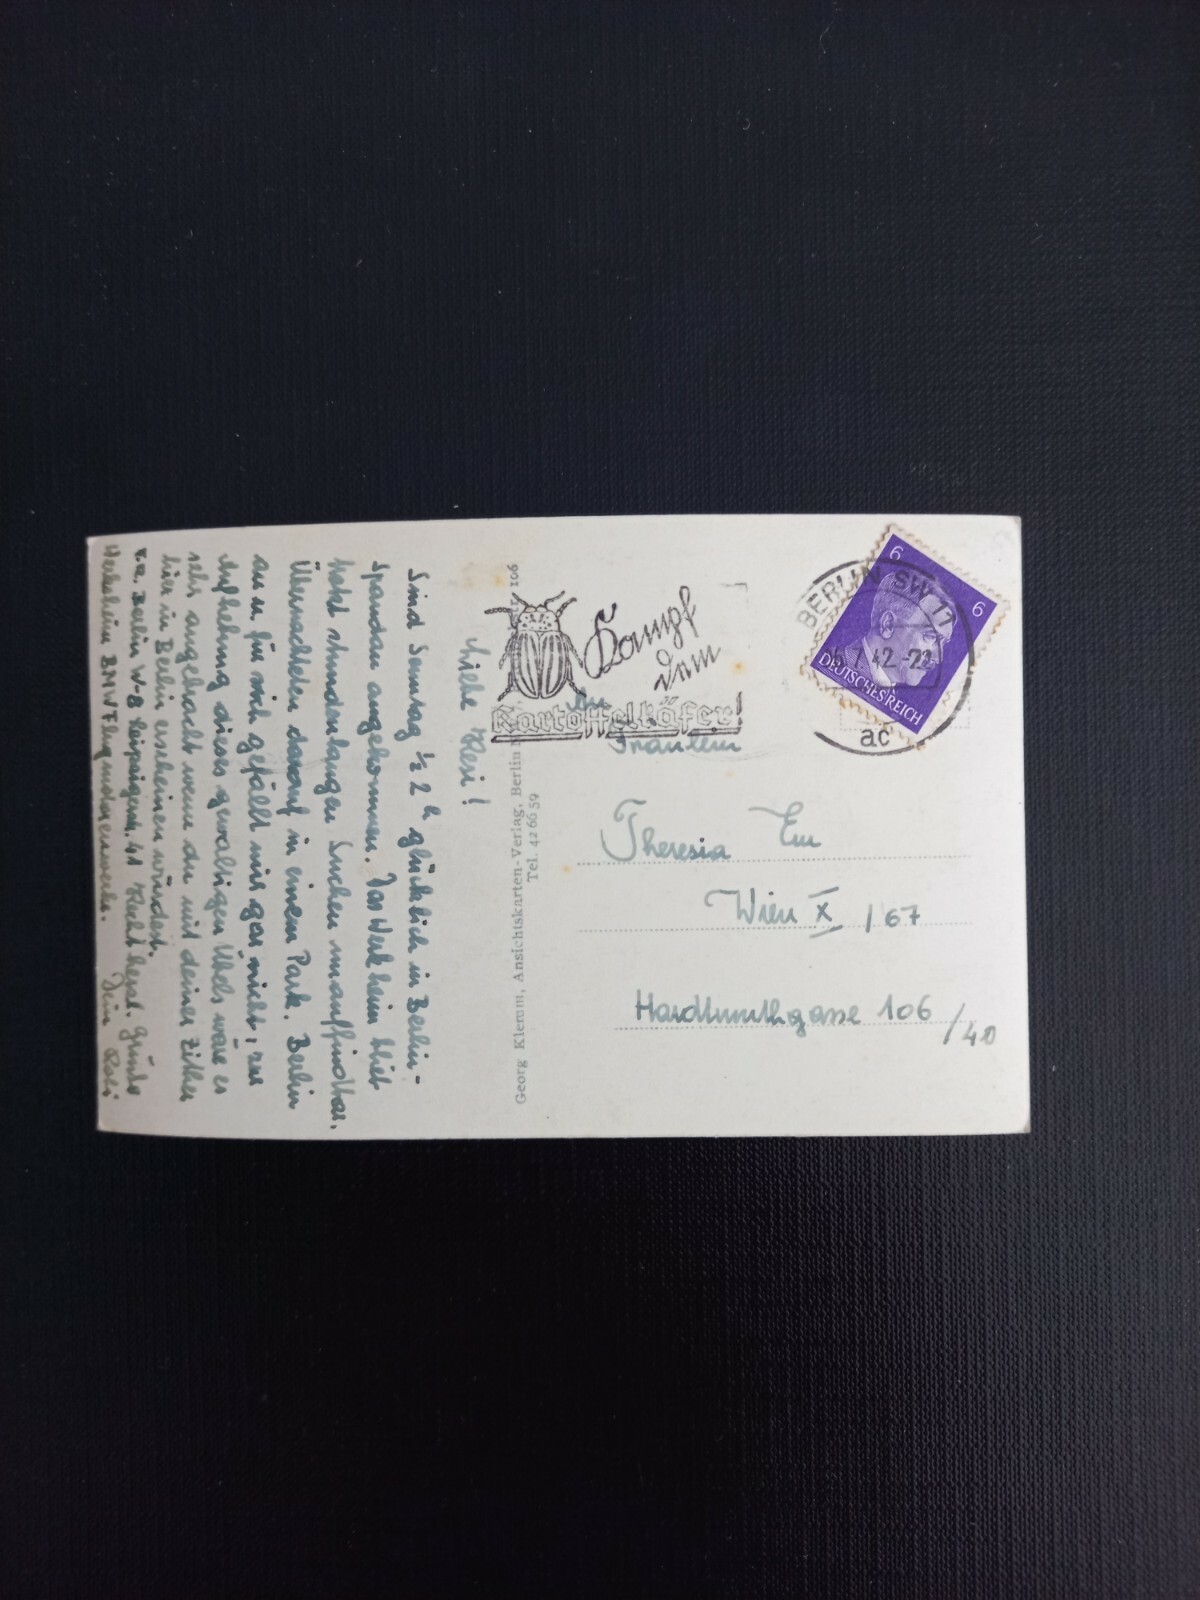 Liebe Resi!
Sind Sonntag ½ 2 h glücklich in Berlin-
Spandau angekommen. Das Werkheim blieb
trotz stundenlangen Suchen unauffindbar,
Übernachteten darauf in einem Park. Berlin
an u. für sich gefällt mir gar nicht, zur
Aufhebung dieses gewaltigen Übels wäre es
sehr angebracht wenn du mit deiner Zither
hier in Berlin erscheinen würdest.
Berlin W-8 Leipzigerstr. 41 Recht herzl. Grüße
Werkheim BMW Flugmotorenwerke. Dein
Georg Klemm, Ansichtskarten-Verlag, Berlin
106
Tel. 42 66 59
Kampf
dem
Kartoffelkäfer!
BERLIN SW 11
42.-2
ac
6
6
DEUTSCHES REICH
An
Fräulein
Theresia
Wien X /67
Hardtmuthgasse 106/40